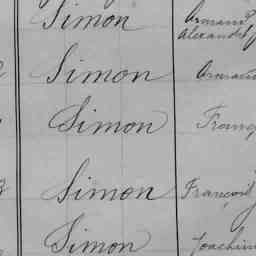 Simon Armand
Alexandre
Simon Armand
Simon Franç
Simon François
Simon Joachim